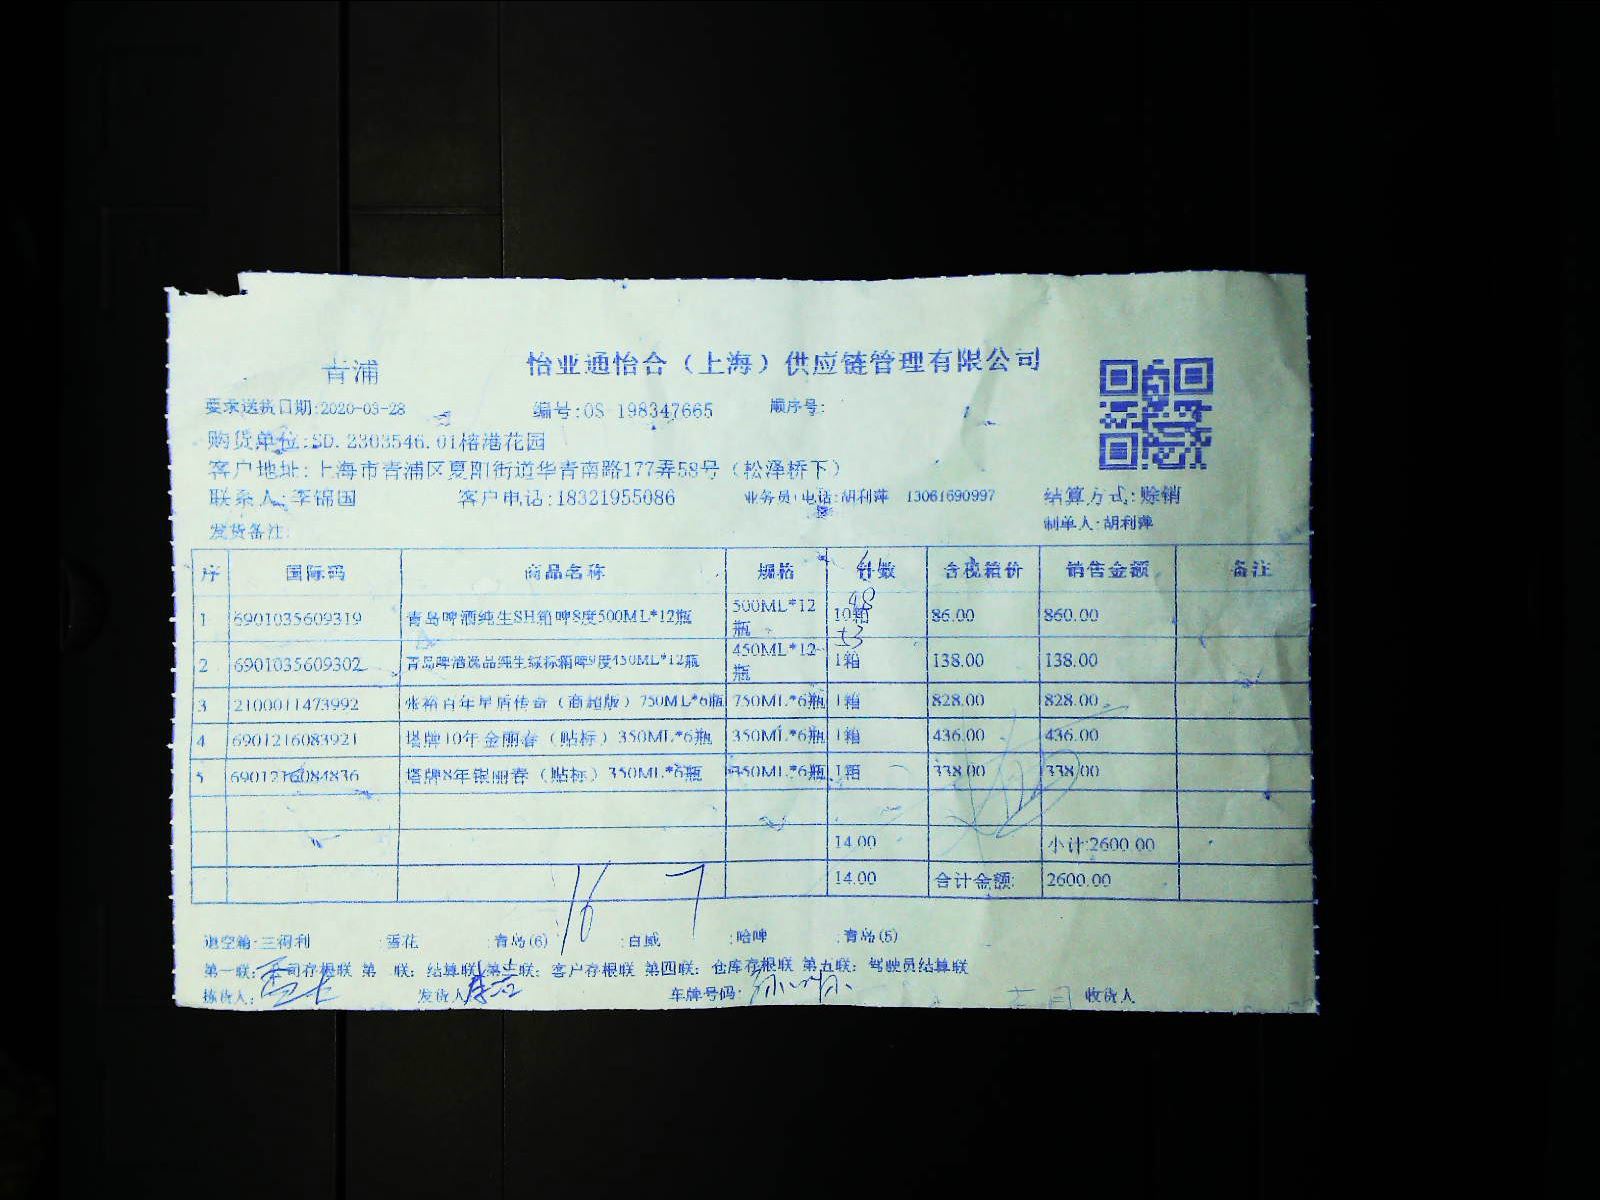 青浦 怡亚通怡合（上海）供应链管理有限公司
要求送货日期:2020-03-28 编号:OS-198347665 顺序号:
购货单位:SD.2303546.01椿港花园
客户地址:上海市青浦区夏阳街道华青南路177弄58号（松泽桥下）
联系人:李锦国 客户电话:18321955086 业务员 电话:胡利萍 13061690997 结算方式:赊销
发货备注: 制单人:胡利萍
序 国际码 商品名称 规格 件数 含税箱价 销售金额 备注
1 6901035609319 青岛啤酒纯生SH箱啤8度500ML*12瓶 500ML*12瓶 10箱 86.00 860.00
2 6901035609302 青岛啤酒逸品纯生绿标箱啤9度450ML*12瓶 450ML*12瓶 1箱 138.00 138.00
3 2100011473992 张裕百年星盾传奇（商超版）750ML*6瓶 750ML*6瓶 1箱 828.00 828.00
4 6901216083921 塔牌10年金丽春（贴标）350ML*6瓶 350ML*6瓶 1箱 436.00 436.00
5 6901216084836 塔牌8年银丽春（贴标）350ML*6瓶 350ML*6瓶 1箱 338.00 338.00
14.00 小计:2600.00
14.00 合计金额: 2600.00
16 7
退空箱:三得利 :雪花 :青岛(6) :百威 :哈啤 :青岛(5)
第一联:公司存根联 第 联:结算联 第三联:客户存根联 第四联:仓库存根联 第五联:驾驶员结算联
拣货人: 发货人 车牌号码: 收货人